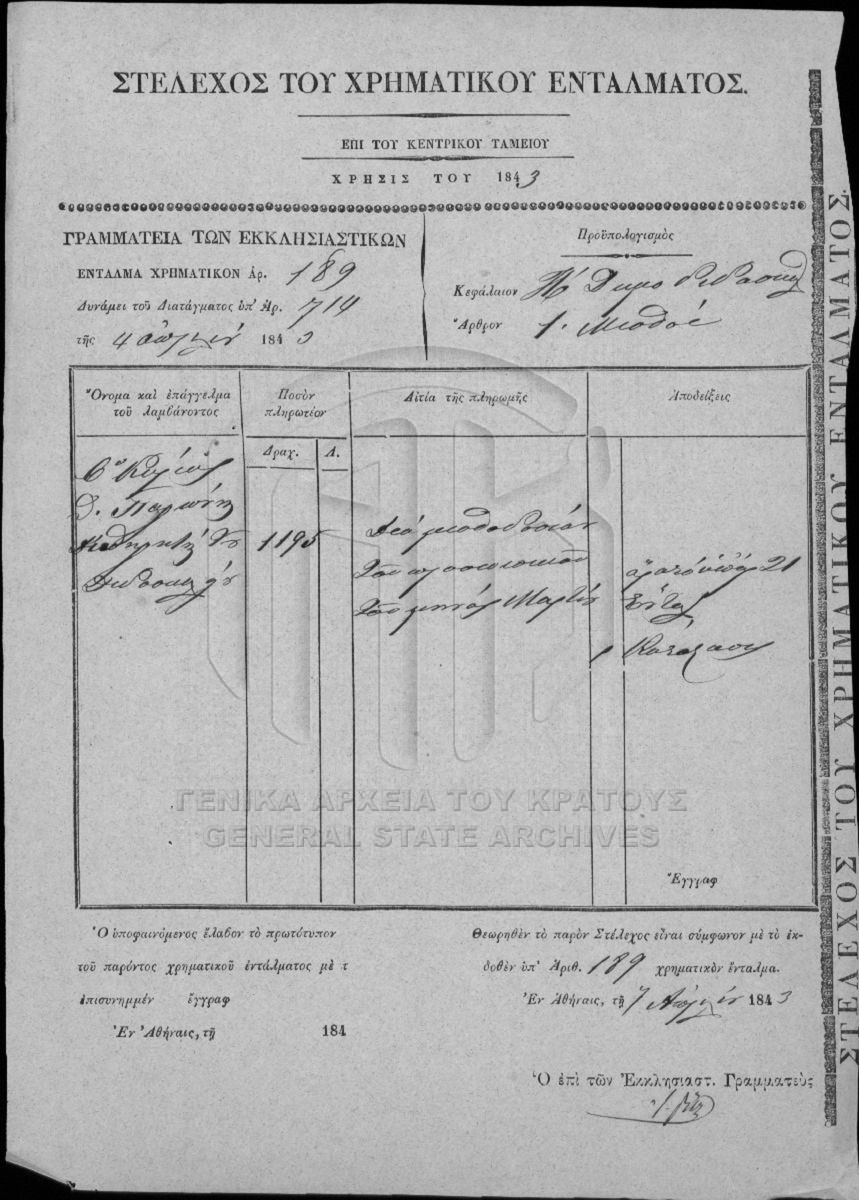 ΣΤΕΛΕΧΟΣ ΤΟΥ ΧΡΗΜΑΤΙΚΟΥ ΕΝΤΑΛΜΑΤΟΣ.
ΕΠΙ ΤΟΥ ΚΕΝΤΡΙΚΟΥ ΤΑΜΕΙΟΥ
ΧΡΗΣΙΣ ΤΟΥ 1843
ΓΡΑΜΜΑΤΕΙΑ ΤΩΝ ΕΚΚΛΗΣΙΑΣΤΙΚΩΝ
ΕΝΤΑΛΜΑ ΧΡΗΜΑΤΙΚΟΝ Ἀρ. 189
Δυνάμει τοῦ Διατάγματος ὑπ' Ἀρ. 714
τῆς 4 ἀπριλίου 1843
Προϋπολογισμὸς
Κεφάλαιον
Ἄρθρον 1. Μισθοί
Ὄνομα καὶ ἐπάγγελμα
τοῦ λαμβάνοντος
Ποσὸν
πληρωτέον
Αἰτία τῆς πληρωμῆς
Ἀποδείξεις
Δραχ. Λ.
Ὁ Κύριος
1195
Διὰ μισθοδοσίαν
τοῦ προσωπικοῦ
τοῦ μηνὸς Μαρτίου
21
Κατάστασις
ΓΕΝΙΚΑ ΑΡΧΕΙΑ ΤΟΥ ΚΡΑΤΟΥΣ
GENERAL STATE ARCHIVES
Ἔγγραφ
Ὁ ὑποφαινόμενος ἔλαβον τὸ πρωτότυπον
τοῦ παρόντος χρηματικοῦ ἐντάλματος μὲ τ
ἐπισυνημμέν ἔγγραφ
Ἐν Ἀθήναις, τῇ 184
Θεωρηθὲν τὸ παρὸν Στέλεχος εἶναι σύμφωνον μὲ τὸ ἐκ-
δοθὲν ὑπ' Ἀριθ. 189 χρηματικὸν ἔνταλμα.
Ἐν Ἀθήναις, τῇ 7 Ἀπριλίου 1843
Ὁ ἐπὶ τῶν Ἐκκλησιαστ. Γραμματεὺς
ΣΤΕΛΕΧΟΣ ΤΟΥ ΧΡΗΜΑΤΙΚΟΥ ΕΝΤΑΛΜΑΤΟΣ.